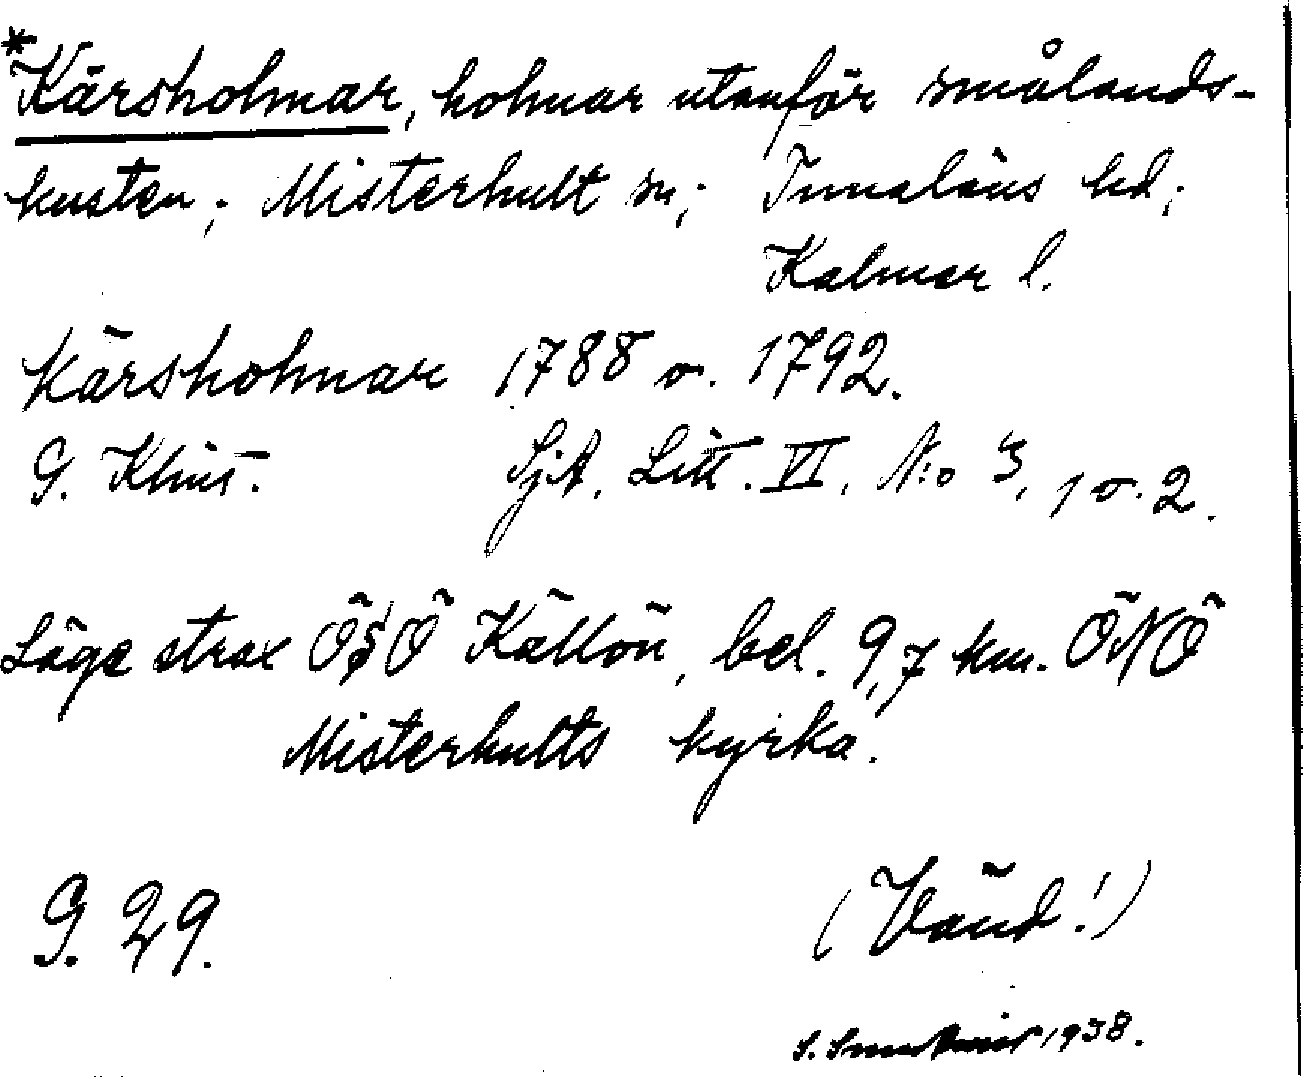 *Kärsholmar, holmar utanför smålands-
kusten; Misterhult sn; Tunaläns hd;
Kalmar l.
Kärsholmar 1788 o. 1792.
G. Klint. SjA. Litt. VI, N:o 3, 1 o. 2.
Läge strax ÖSÖ Källön, bel. 9,7 km. ÖNÖ
Misterhults kyrka.
G. 29. (Vänd!)
S. 1938.